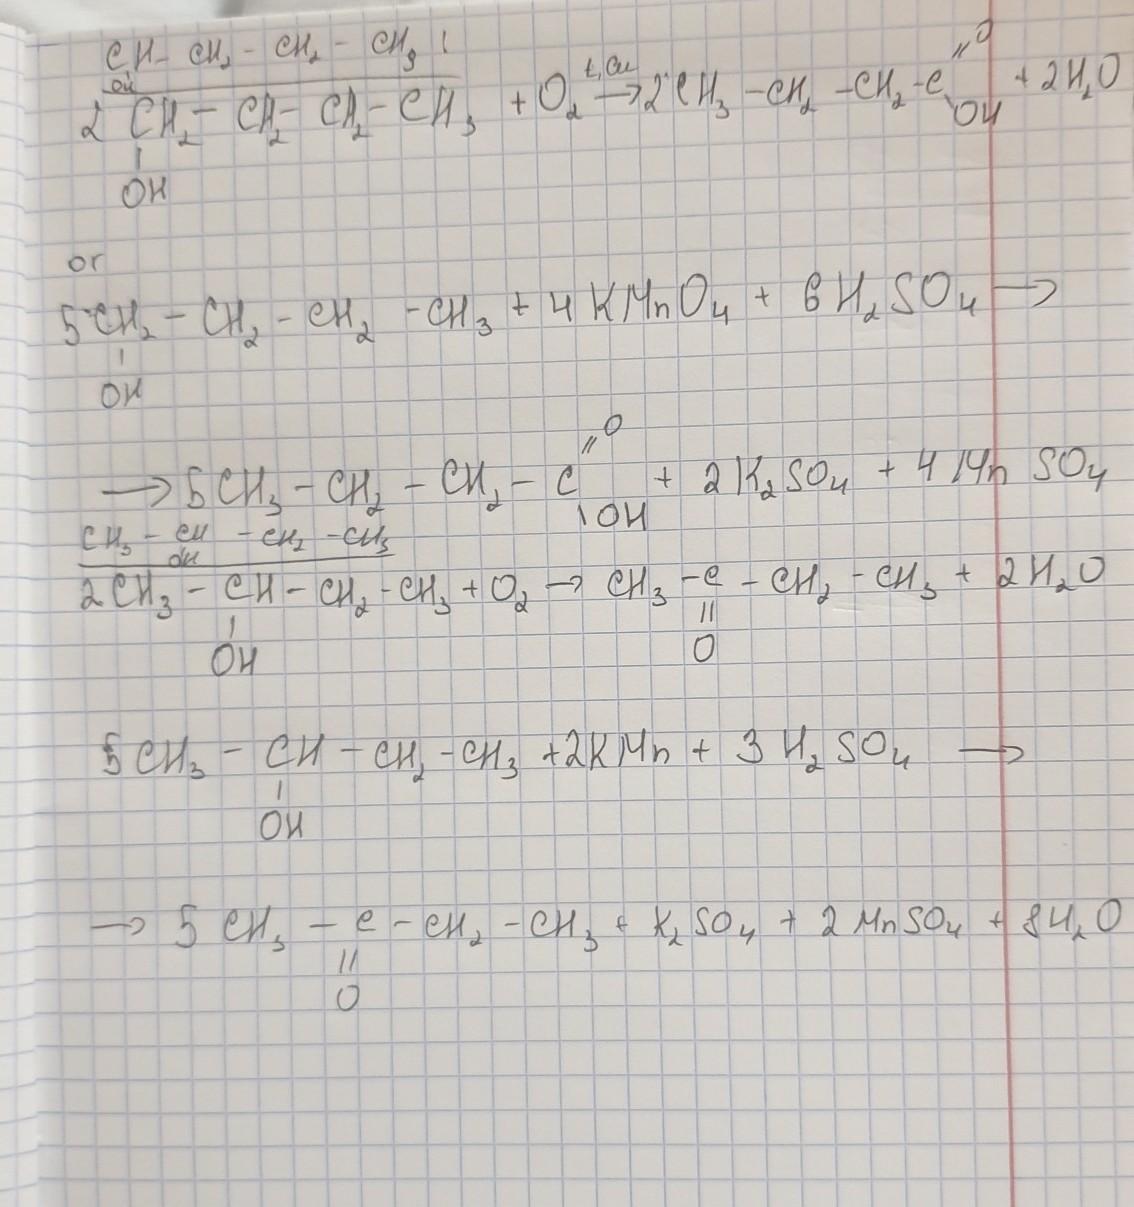 CH - CH₂ - CH₂ - CH₃
OH
2 CH₂ - CH₂ - CH₂ - CH₃ + O₂ t, Cu → 2 CH₃ - CH₂ - CH₂ - C = O + 2H₂O
OH OH
or
5 CH₂ - CH₂ - CH₂ - CH₃ + 4 KMnO₄ + 6 H₂SO₄ →
OH
O
→ 5 CH₃ - CH₂ - CH₂ - C + 2 K₂SO₄ + 4 MnSO₄
OH
CH₃ - CH - CH₂ - CH₃
OH
2 CH₃ - CH - CH₂ - CH₃ + O₂ → CH₃ - C - CH₂ - CH₃ + 2 H₂O
OH O
5 CH₃ - CH - CH₂ - CH₃ + 2 KMn + 3 H₂SO₄ →
OH
→ 5 CH₃ - C - CH₂ - CH₃ + K₂SO₄ + 2 MnSO₄ + 8 H₂O
O